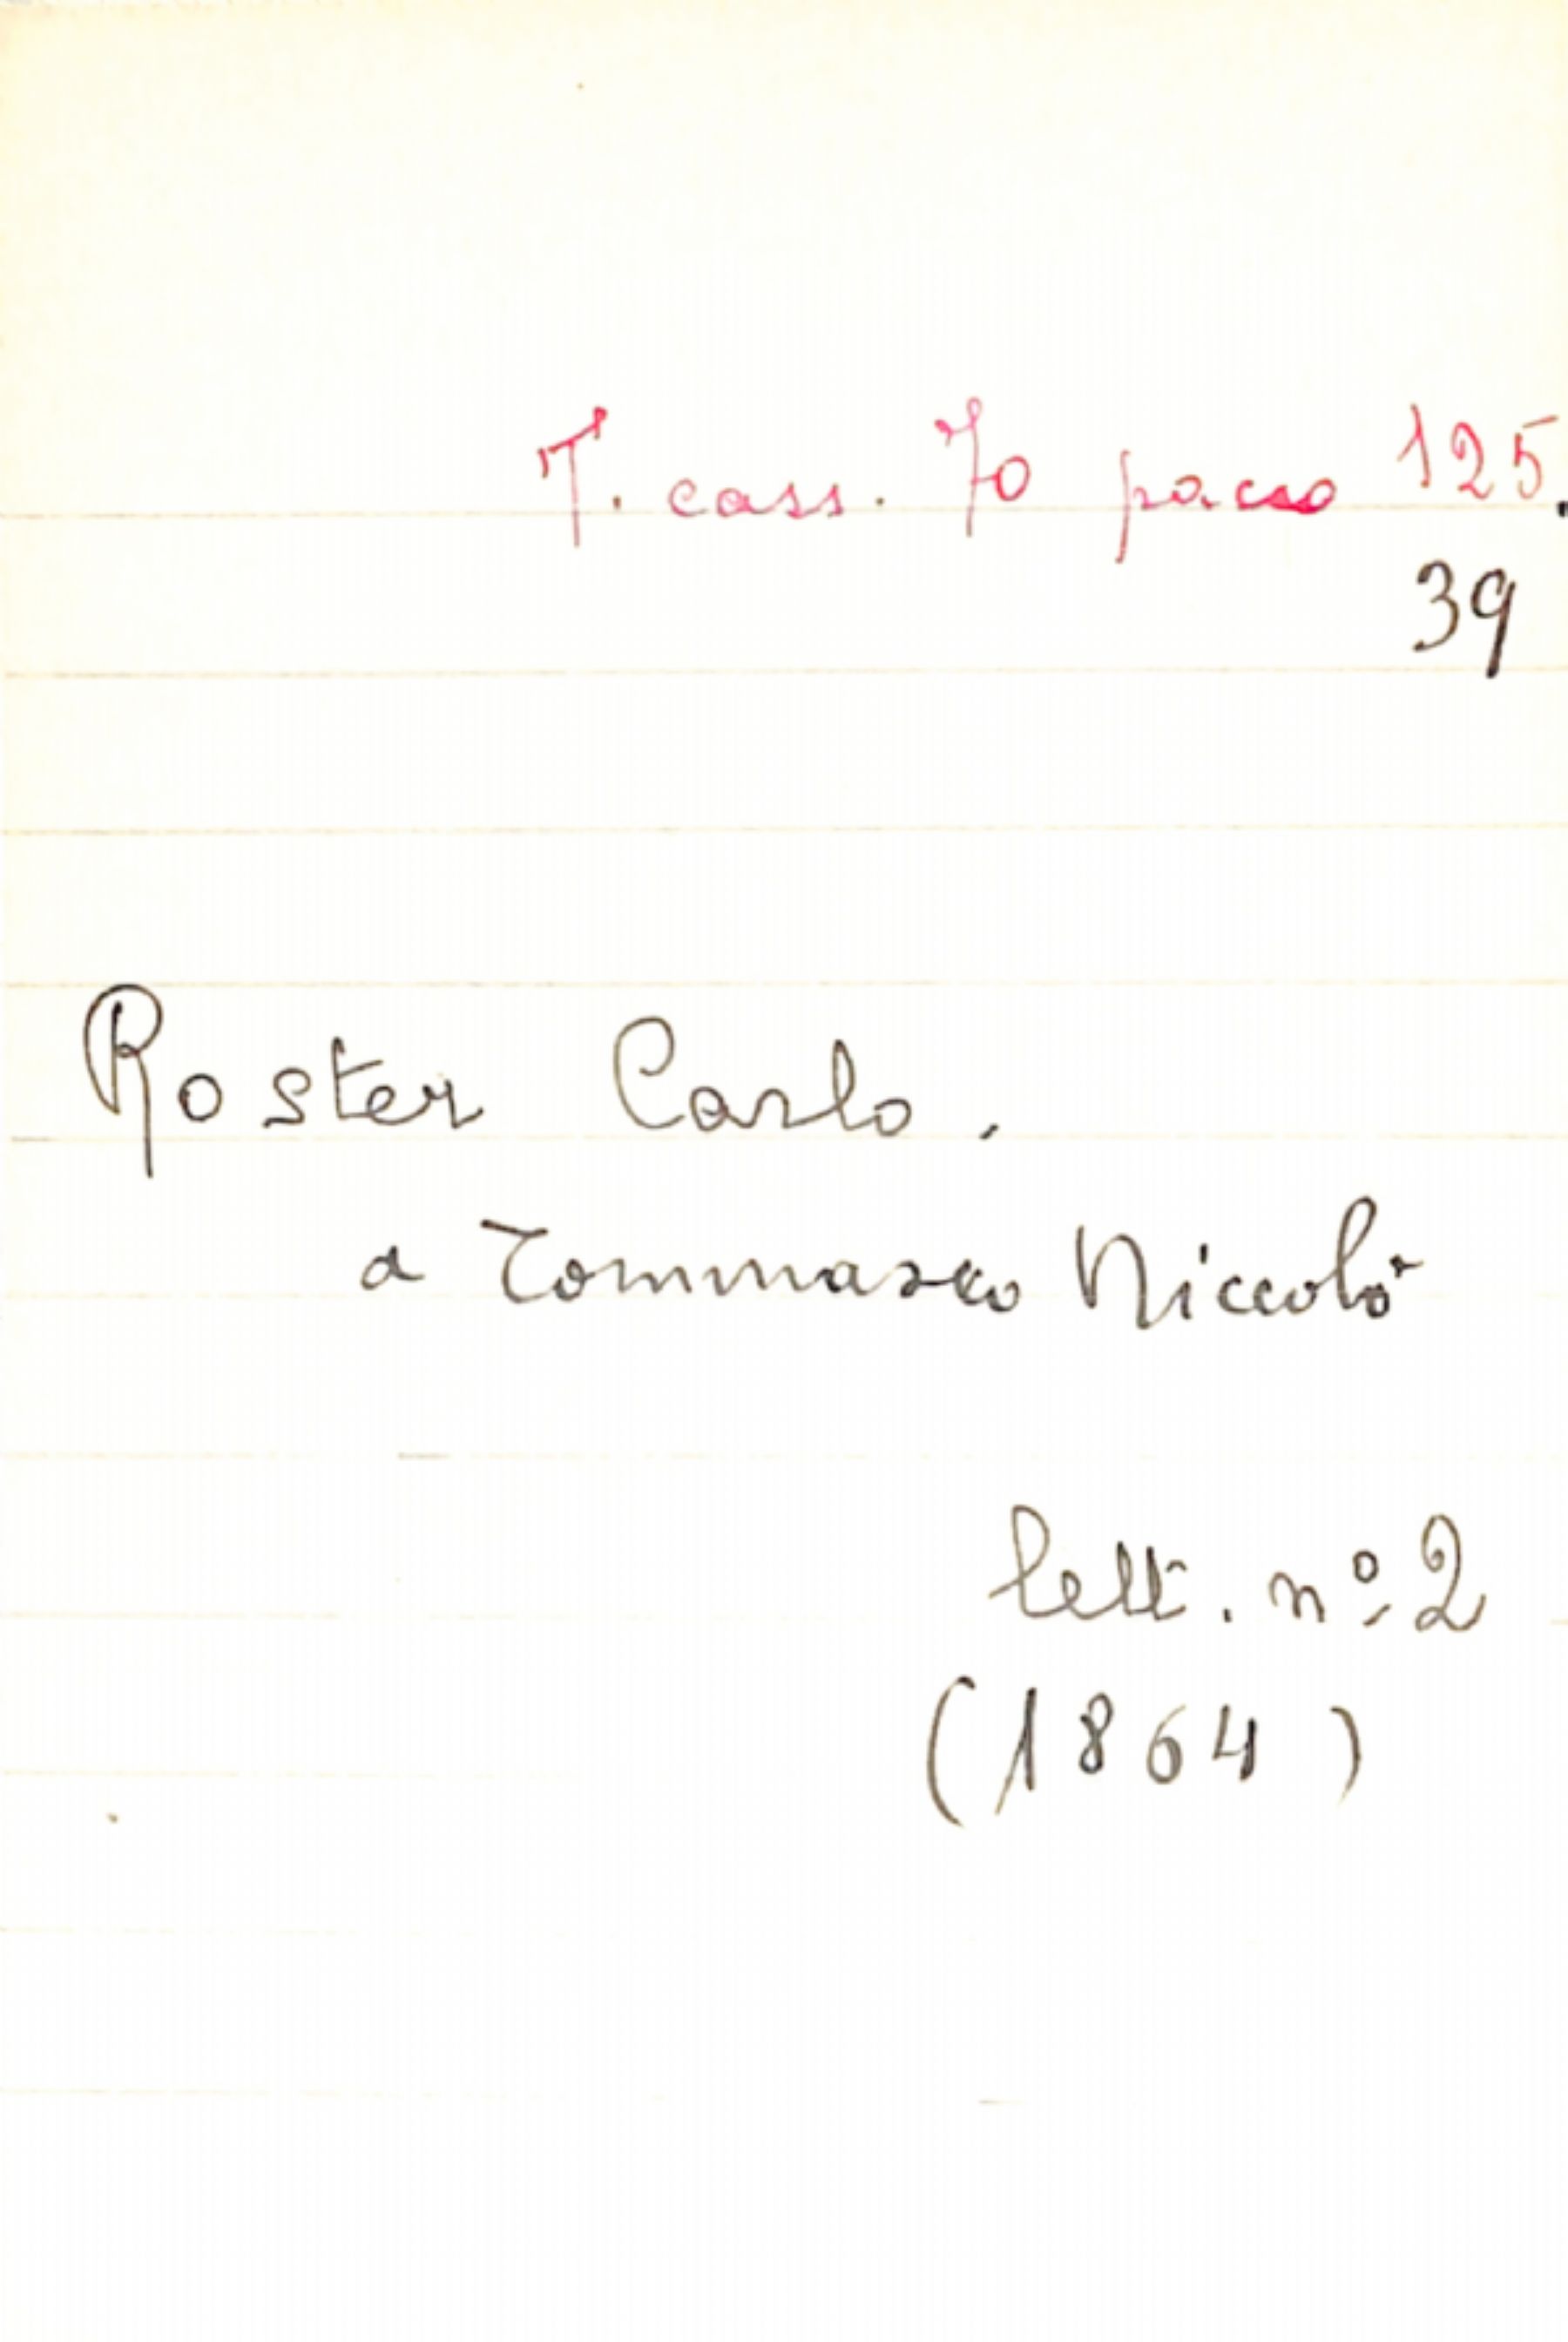 T. cass. 70 pacco 125.
39
Roster Carlo.
a Tommaseo Niccolò
lett. nº 2
(1864)